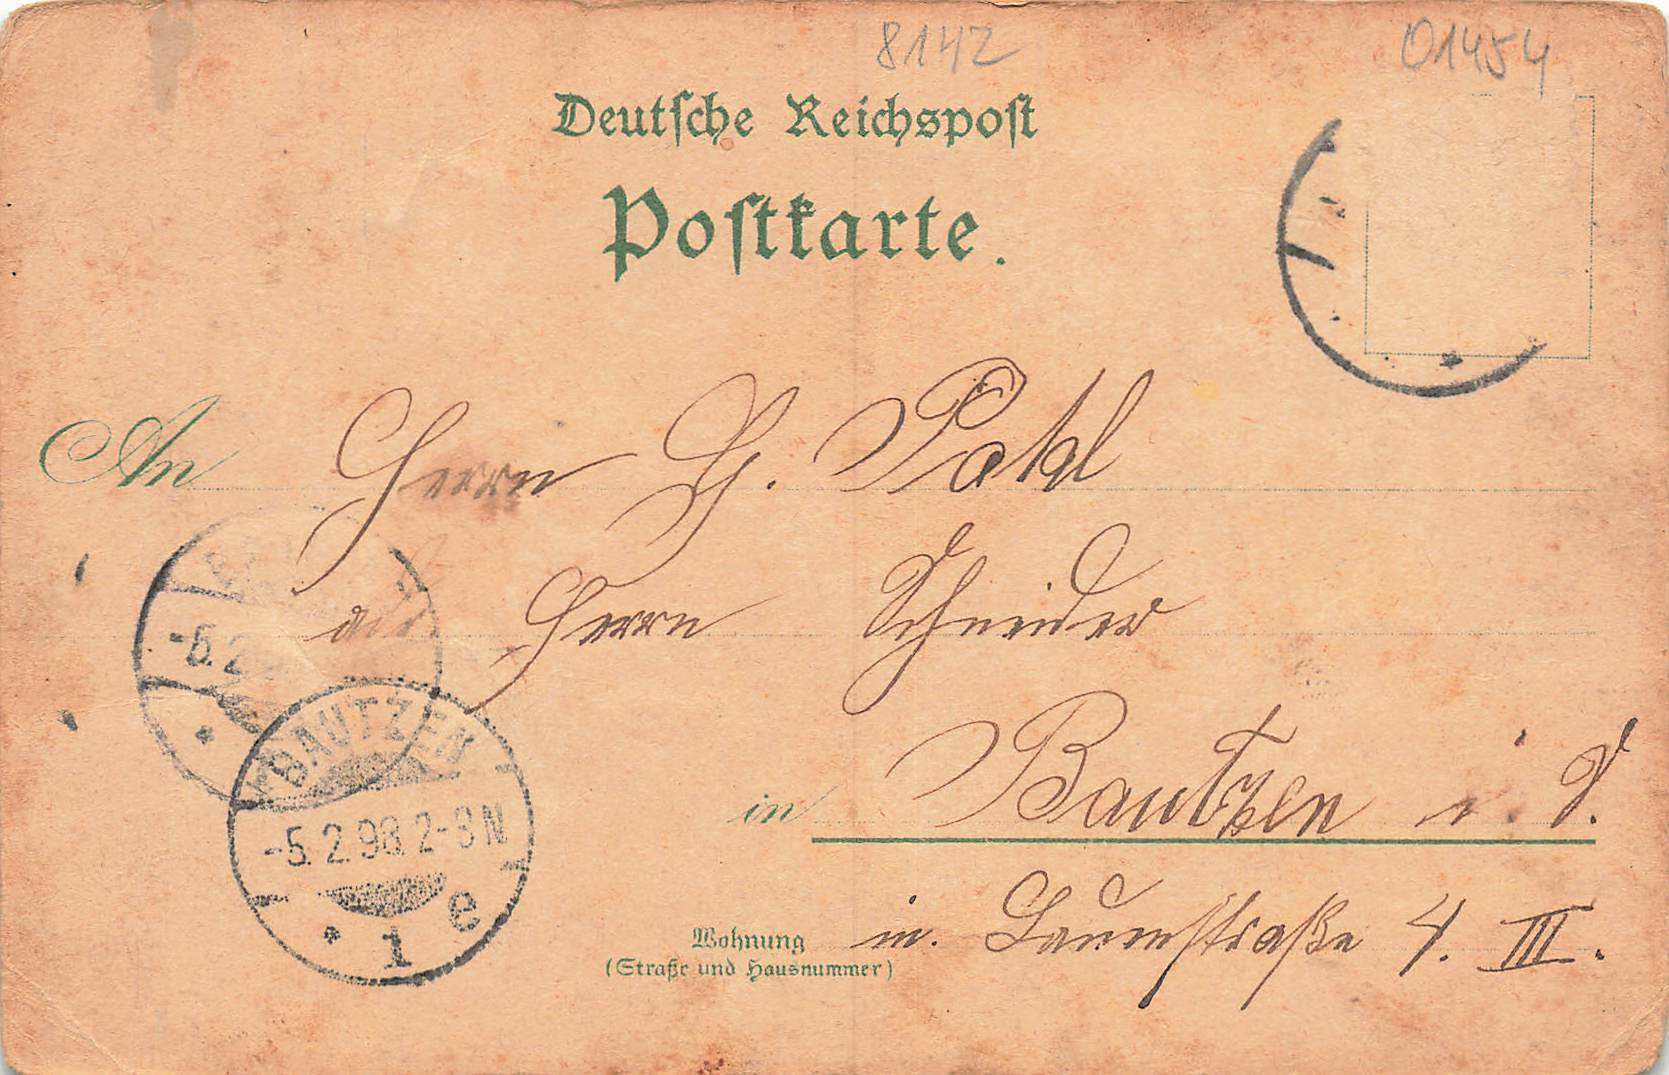 8142
01454
Deutsche Reichspost
Postkarte.
An Herrn G. Pohl
Herrn Schneider
in Bautzen i. S.
Wohnung
(Straße und Hausnummer)
in. Lauenstraße 4. III.
-5.2
BAUTZEN
-5.2.98.2-3N
* 1 e